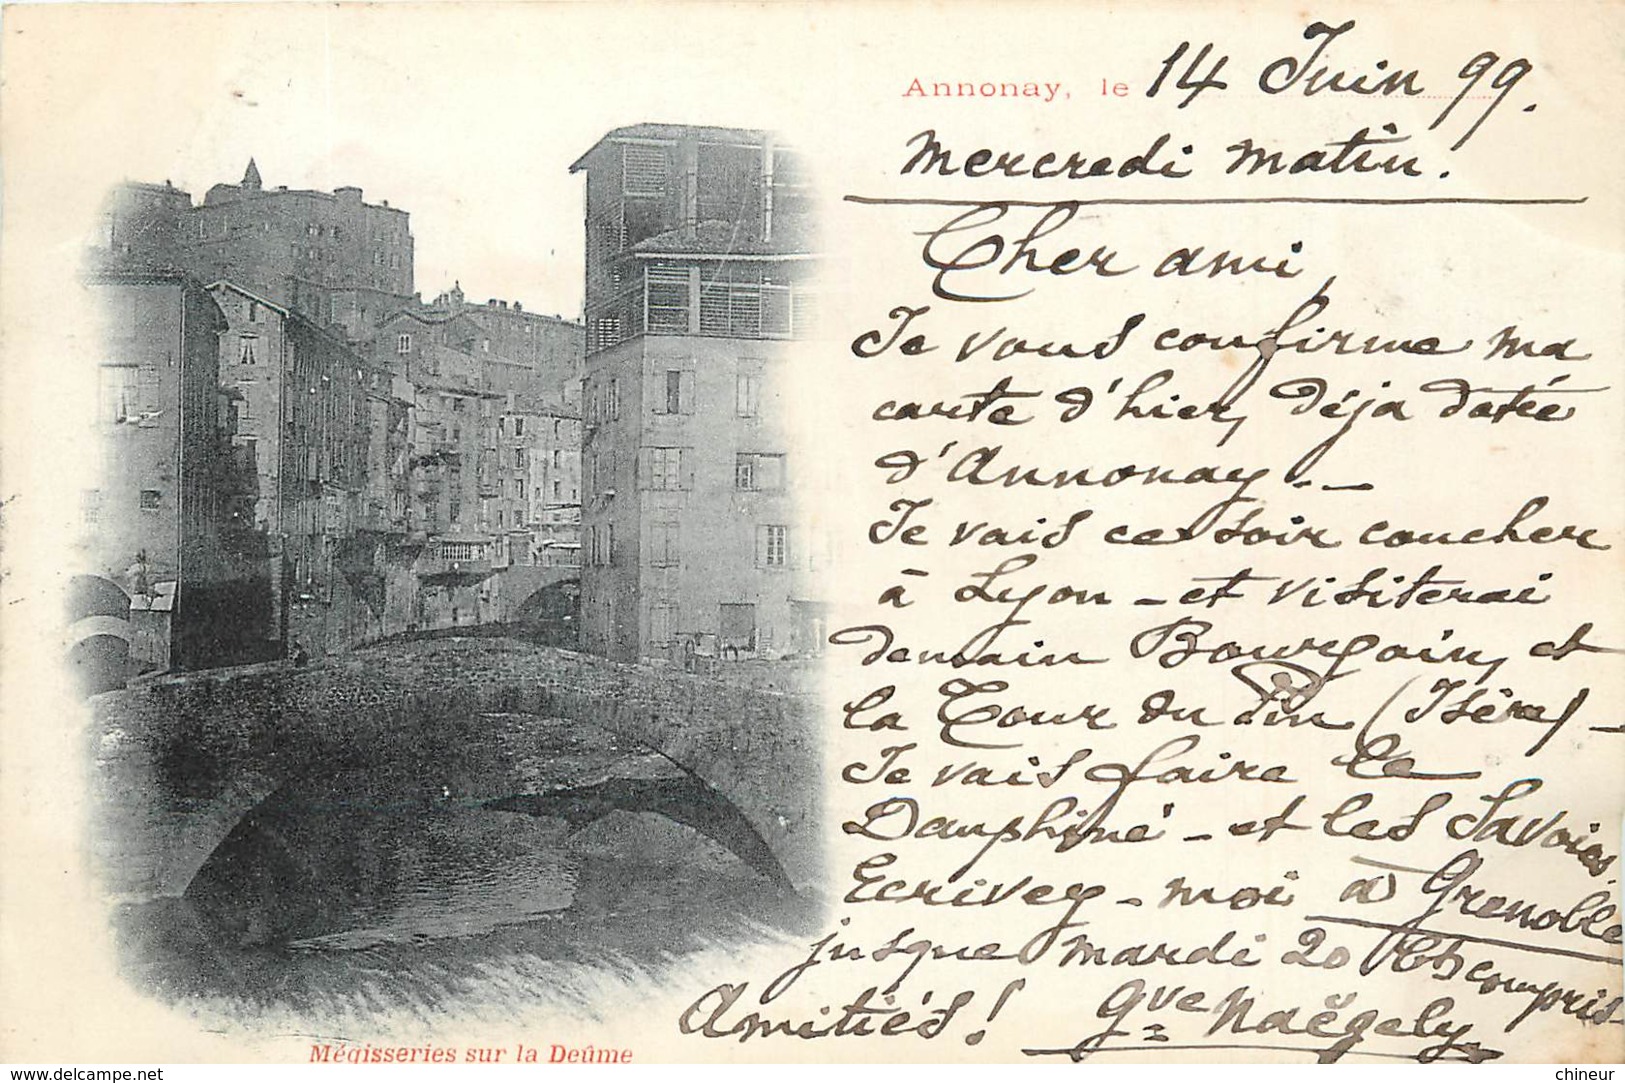 Annonay, le 14 Juin 99.
Mercredi matin.
Cher ami,
Je vous confirme ma
carte d'hier, déja datée
d'Annonay..—
Je vais ce soir coucher
à Lyon - et visiterai
demain Bourgoin, et
la Tour du Pin (Isère) -
Je vais faire le
Dauphiné - et les Savoies.
Ecrivez-moi à Grenoble
jusque mardi 20 ct compris-
Amitiés! Gve Naëgely.
Mégisseries sur la Deûme
© delcampe.net
chineur